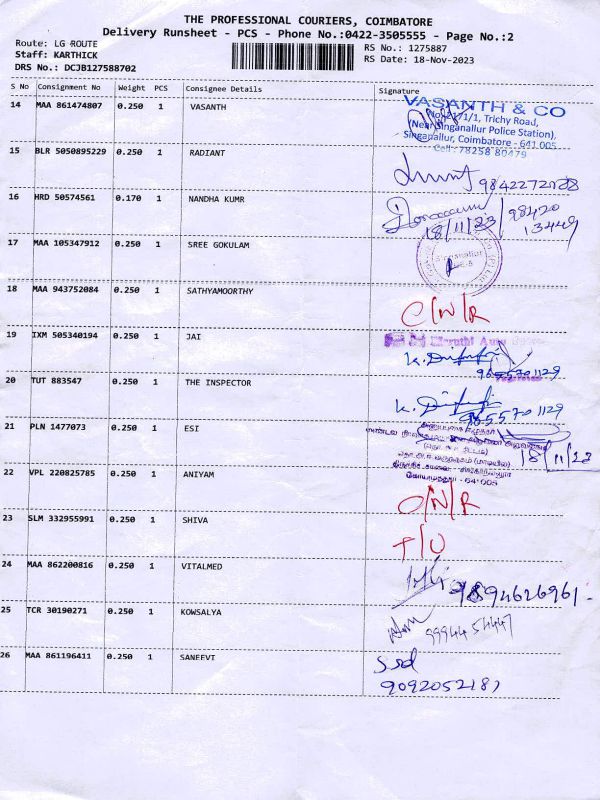 THE PROFESSIONAL COURIERS, COIMBATORE
Delivery Runsheet - PCS - Phone No.:0422-3505555 - Page No.:2
Route: LG ROUTE
Staff: KARTHICK
DRS No.: DCJB127588702
RS No.: 1275887
RS Date: 18-Nov-2023
S No Consignment No Weight PCS Consignee Details Signature
14 MAA 861474807 0.250 1 VASANTH
VASANTH & CO
Trichy Road,
(Near Singanallur Police Station),
Singanallur, Coimbatore - 641 005
Cell : 73258 80479
15 BLR 5050895229 0.250 1 RADIANT
16 HRD 50574561 0.170 1 NANDHA KUMR
18/11/23 / 98420
13449
17 MAA 105347912 0.250 1 SREE GOKULAM
Singanallur
18 MAA 943752084 0.250 1 SATHYAMOORTHY C/N/R
19 IXM 505340194 0.250 1 JAI
Maruthi Auto
9655701129
20 TUT 883547 0.250 1 THE INSPECTOR
9655701129
21 PLN 1477073 0.250 1 ESI
18/11/23
641 005
22 VPL 220825785 0.250 1 ANIYAM O/N/R
23 SLM 332955991 0.250 1 SHIVA T/U
24 MAA 862200816 0.250 1 VITALMED
9894626961
25 TCR 30190271 0.250 1 KOWSALYA
9994454447
26 MAA 861196411 0.250 1 SANEEVT
9092052187